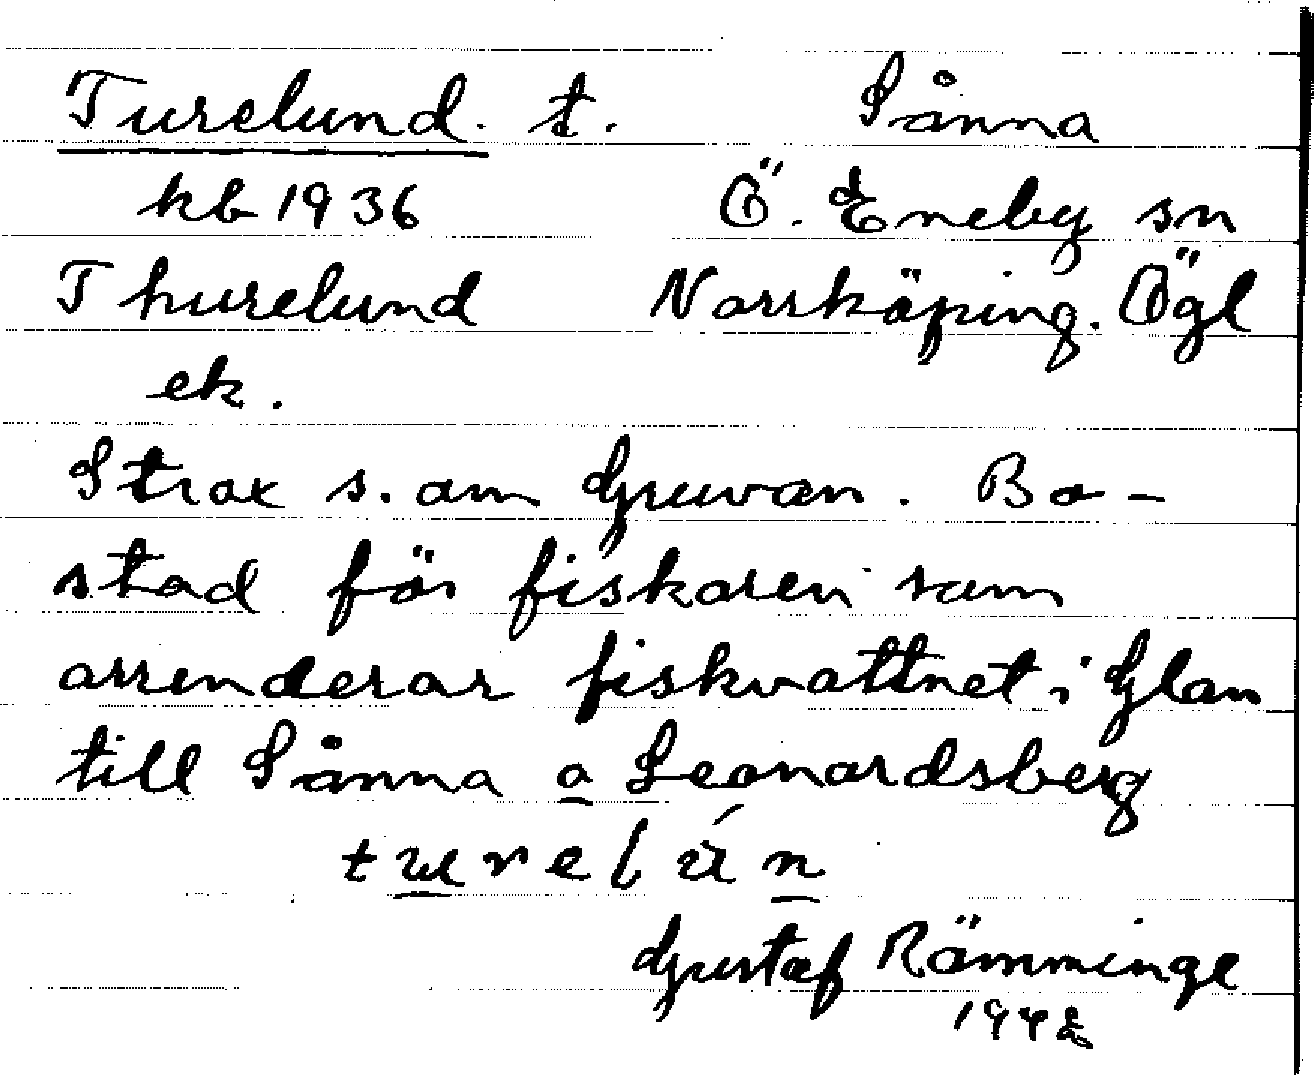 Turelund. t. Sånna
kb 1936 Ö. Eneby sn
Thurelund Norrköping. Ögl
ek.
Strax s. om Gruvan. Bo-
stad för fiskaren som
arrenderar fiskvattnet i Glan
till Sånna o Leonardsberg
turelún
Gustaf Rämminge
1942